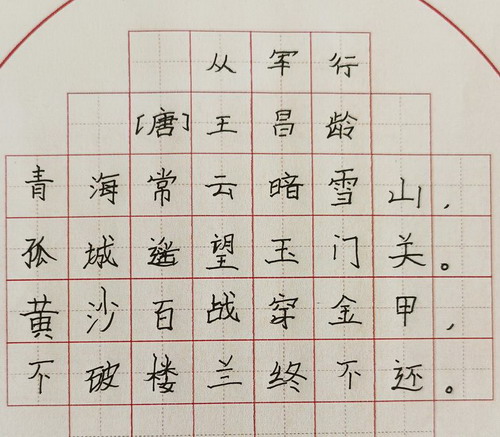 从军行
[唐]王昌龄
青海常云暗雪山,
孤城遥望玉门关。
黄沙百战穿金甲,
不破楼兰终不还。